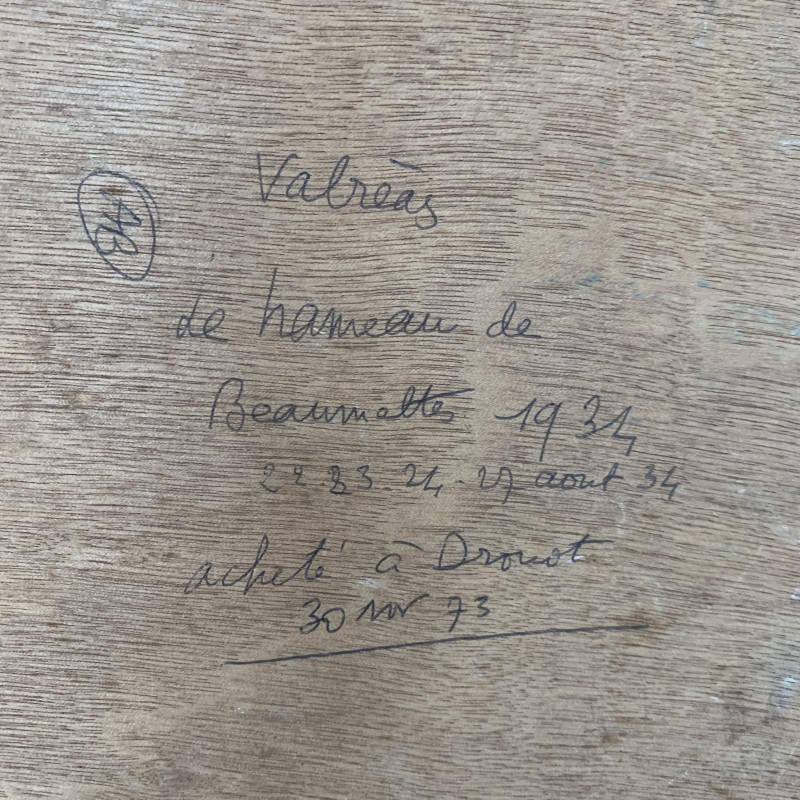 Valrèas
AB
Le hameau de
Beaumettes 1934
22.23.24.27 aout 34
acheté à Drouot
30 nov 73